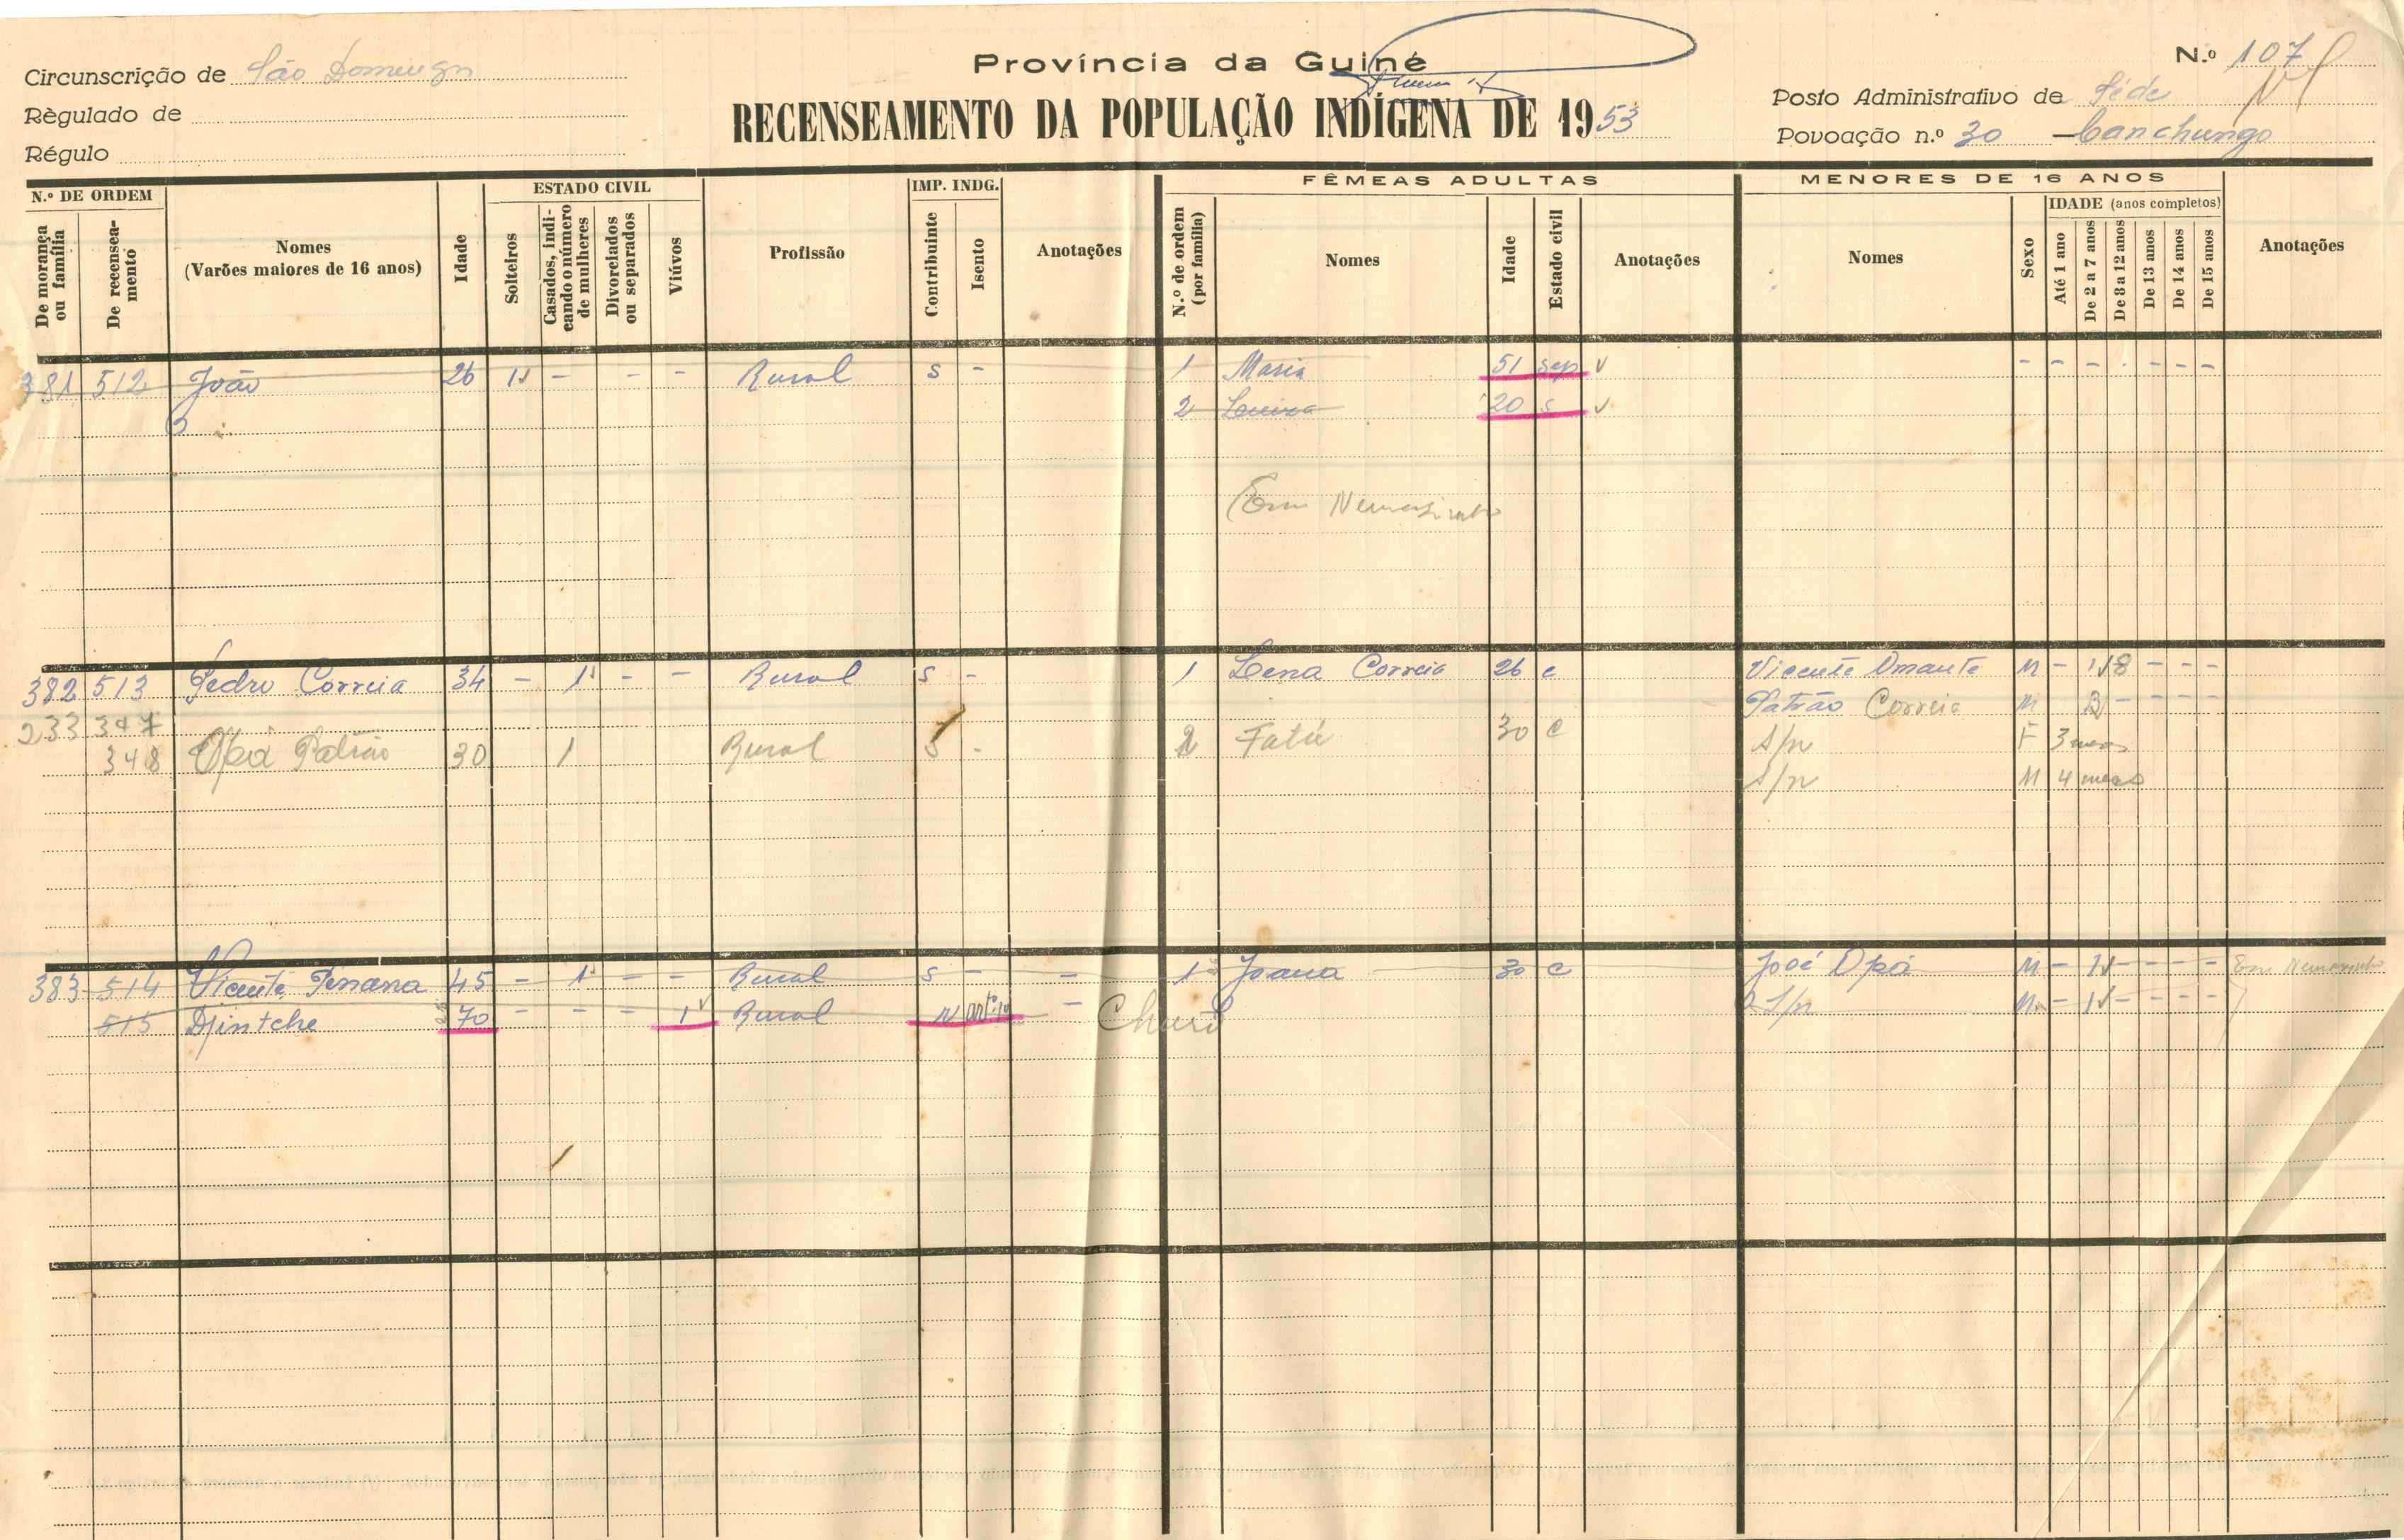 Província da Guiné
N.º 107
Circunscrição de São Domingos
Règulado de
Régulo
RECENSEAMENTO DA POPULAÇÃO INDÍGENA DE 1953
Posto Administrativo de Séde
Povoação n.º 30 — Canchungo
N.º DE ORDEM
De morança ou família
De recenseamento
Nomes
(Varões maiores de 16 anos)
Idade
ESTADO CIVIL
Solteiros
Casados, indicando o número de mulheres
Divorciados ou separados
Viúvos
Profissão
IMP. INDG.
Contribuinte
Isento
Anotações
FÊMEAS ADULTAS
N.º de ordem (por família)
Nomes
Idade
Estado civil
Anotações
MENORES DE 16 ANOS
Nomes
Sexo
IDADE (anos completos)
Até 1 ano
De 2 a 7 anos
De 8 a 12 anos
De 13 anos
De 14 anos
De 15 anos
Anotações
381 512 João 26 1 - - - Rural S - 1 Maria 51 sep - - - - - - -
2 Luiza 20 S
Em
382 513 Pedro Correia 34 - 1 - - Rural S - 1 Lena Correia 26 c Vicente Dmante M - 1 8 - - -
233 347 Patrão Correia M
348 Opá Patrão 30 1 Rural S - 2 Fatú 30 c S/n F 3 meses
S/n M 4 meses
383 514 Vicente 45 - 1 - - Rural S - - 1 Joana 30 c José Opá M - 1 - - - - Em
515 Djintche 70 - - - 1 Rural N artº - Churo S/n M - 1 - - - -